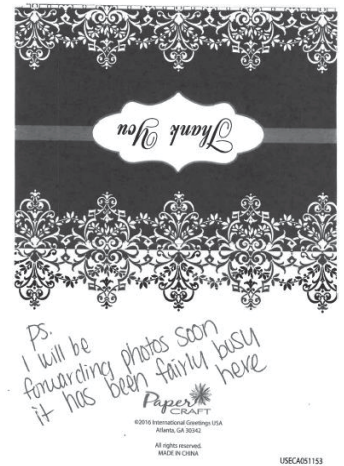 Thank You
Ps.
I will be
forwarding photos soon
it has been fairly busy
here
Paper
CRAFT
©2016 International Greetings USA
Atlanta, GA 30342
All rights reserved.
MADE IN CHINA
USECA051153